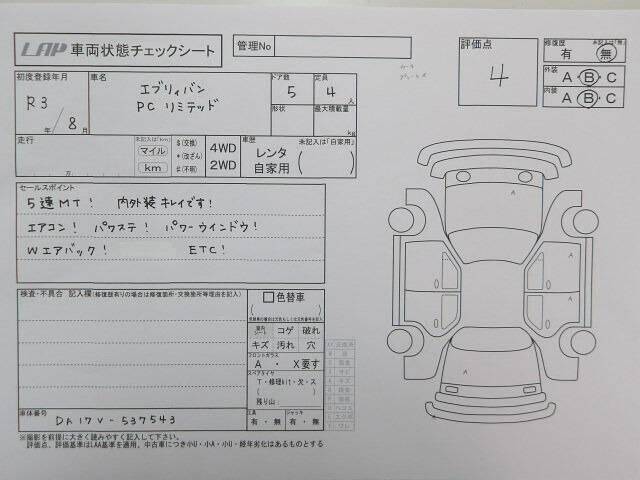 LAP 車両状態チェックシート
管理No
評価点
4
修復歴 未記入は「無」
有 無
外装 A・B・C
内装 A・B・C
初度登録年月
R3 / 8
年 月
車名
エブリィバン
PCリミテッド
ドア数
5
定員
4人
形状
最大積載量
kg
走行
未記入は「km」
マイル
km
万
$(交換)
*(改ざん)
#(不明)
4WD
2WD
車歴 未記入は「自家用」
レンタ
自家用
セールスポイント
5速MT! 内外装キレイです!
エアコン! パワステ! パワーウインドウ!
Wエアバック! ETC!
検査・不具合 記入欄(修復歴有りの場合は修復箇所・交換箇所等理由を記入)
色替車
コゲ 破れ
キズ 汚れ 穴
フロントガラス
A ・ X要す
スペアタイヤ
T・修理kit・欠・ス
残り山
エアB
有・無
ジャッキ
有・無
車体番号
DA17V-537543
※撮影を前提に大きく読みやすく記入して下さい。
評価点、評価基準はLAA基準を適用、中古車につき小U・小A・小U・経年劣化はあるものとする
A
A
A
A